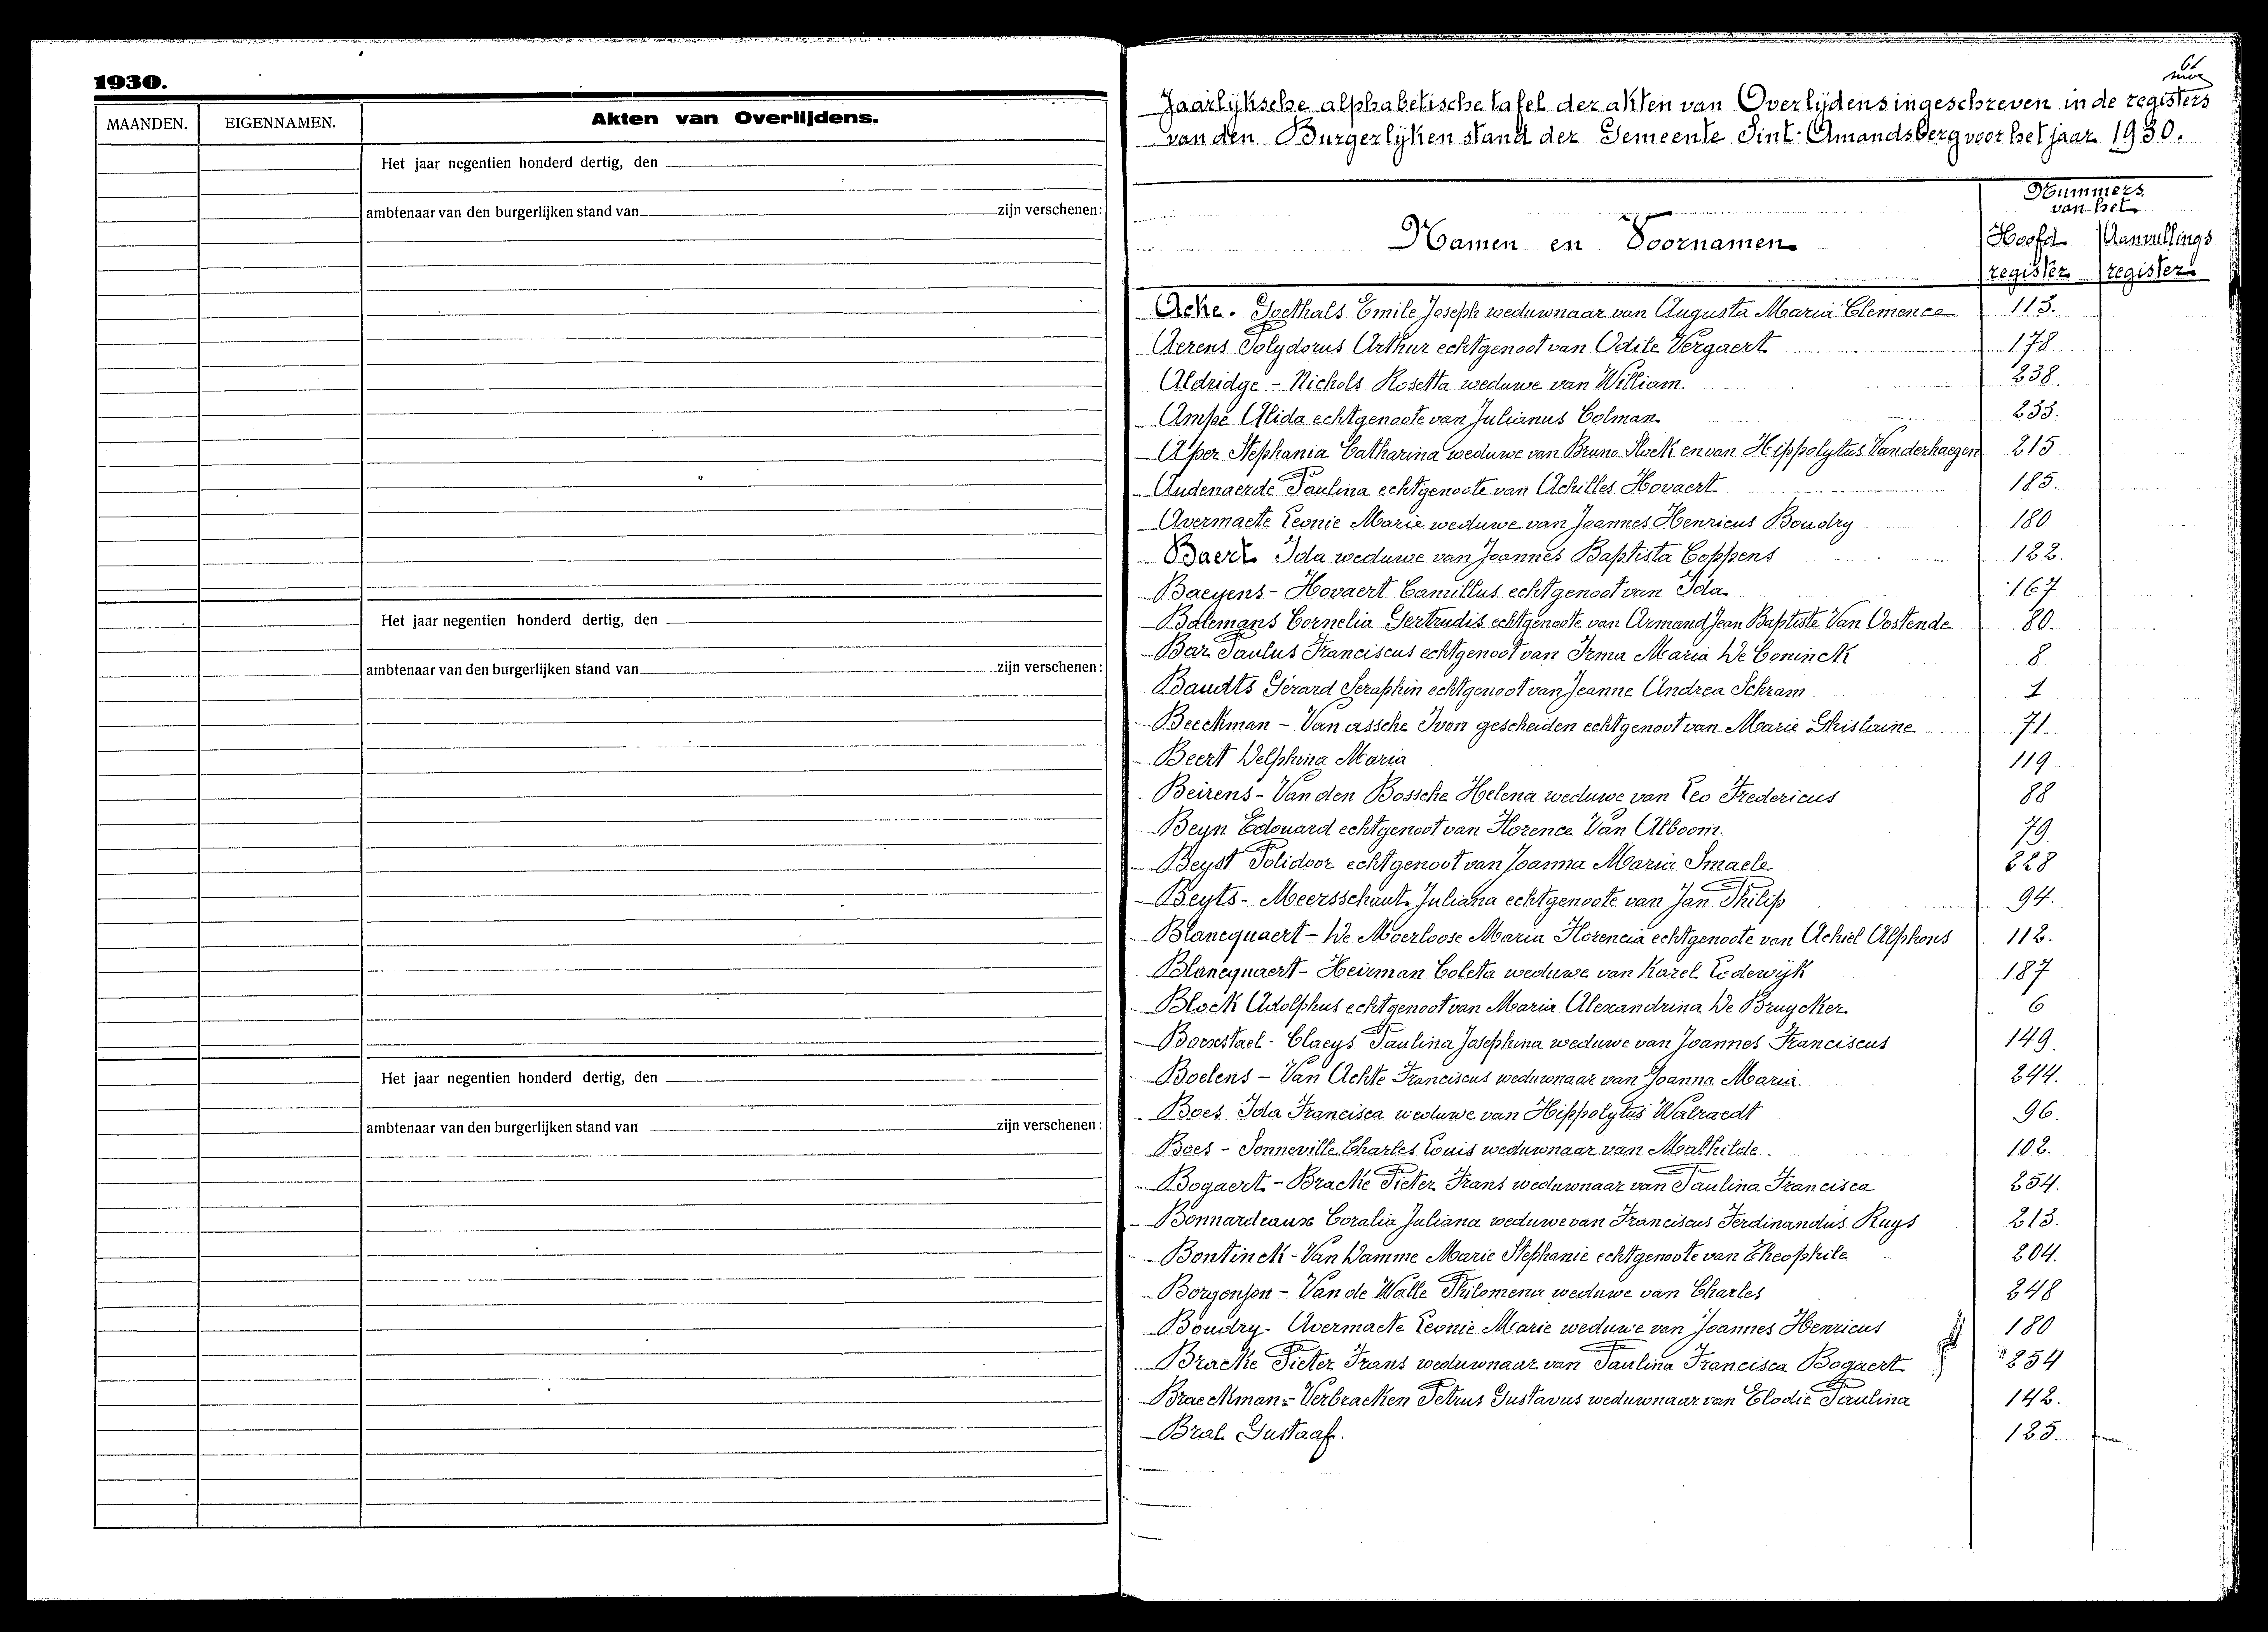 1930.
MAANDEN. EIGENNAMEN. Akten van Overlijdens.
Het jaar negentien honderd dertig, den
ambtenaar van den burgerlijken stand van zijn verschenen:
Het jaar negentien honderd dertig, den
ambtenaar van den burgerlijken stand van zijn verschenen:
Het jaar negentien honderd dertig, den
ambtenaar van den burgerlijken stand van zijn verschenen:
Jaarlijksche alphabetische tafel der akten van Overlijdens ingeschreven in de registers
van den Burgerlijken stand der Gemeente Sint-Amandsberg voor het jaar 1930.
Nummers
van het
Namen en Voornamen Hoofd Aanvullings
register register
Acke. Goethals Emile Joseph weduwnaar van Augusta Maria Clemence 113.
Aerens Polydorus Arthur echtgenoot van Odile Vergaert 178
Aldridge - Nichols Rosetta weduwe van William. 238
Ampe Alida echtgenoote van Julianus Colman 233.
Asper Stephania Catharina weduwe van Bruno Stock en van Hippolytus Vanderhaegen 215
Audenaerde Paulina echtgenoote van Achilles Hovaert 185.
Avermaete Leonie Marie weduwe van Joannes Henricus Boudry 180
Baert Ida weduwe van Joannes Baptista Coppens 122.
Baeyens - Hovaert Camillus echtgenoot van Ida 167
Balemans Cornelia Gertrudis echtgenoote van Armand Jean Baptiste Van Oostende 80.
Bar Paulus Franciscus echtgenoot van Irma Maria De Coninck 8
Baudts Gérard Seraphin echtgenoot van Jeanne Andrea Schram 1
Beeckman - Van assche Ivon gescheiden echtgenoot van Marie Ghislaine 71.
Beert Delphina Maria 119
Beirens - Van den Bossche Helena weduwe van Leo Fredericus 88
Beyn Edouard echtgenoot van Florence Van Alboom. 79.
Beyst Polidoor echtgenoot van Joanna Maria Smaele 228
Beyts - Meersschaut Juliana echtgenoote van Jan Philip 94.
Blancquaert - De Moerloose Maria Florencia echtgenoote van Achiel Alphons 112.
Blancquaert - Heirman Coleta weduwe van Karel Lodewijk 187
Block Adolphus echtgenoot van Maria Alexandrina De Bruycker 6
Boexstael - Claeys Paulina Josephina weduwe van Joannes Franciscus 149.
Boelens - Van Achte Franciscus weduwnaar van Joanna Maria 244.
Boes Ida Francisca weduwe van Hippolytus Walraedt 96.
Boes - Sonneville Charles Louis weduwnaar van Mathilde 102.
Bogaert - Bracke Pieter Frans weduwnaar van Paulina Francisca 254.
Bonnardeaux Coralia Juliana weduwe van Franciscus Ferdinandus Ruys 213.
Bontinck - Van Damme Marie Stephanie echtgenoote van Theophile 204.
Borgonjon - Van de Walle Philomena weduwe van Charles 248
Boudry - Avermaete Leonie Marie weduwe van Joannes Henricus 180
Bracke Pieter Frans weduwnaar van Paulina Francisca Bogaert 254
Braeckman - Verbraeken Petrus Gustavus weduwnaar van Elodie Paulina 142.
Bral Gustaaf. 125.